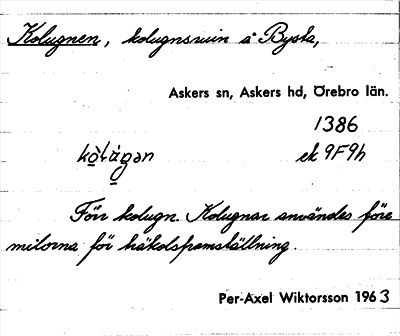 Kolugnen, kolugnsruin å Bysta,
Askers sn, Askers hd, Örebro län.
1386
kò̱lu̱gən ek 9F9h
Förr kolugn. Kolugnar användes före
milorna för träkolsframställning.
Per-Axel Wiktorsson 1963